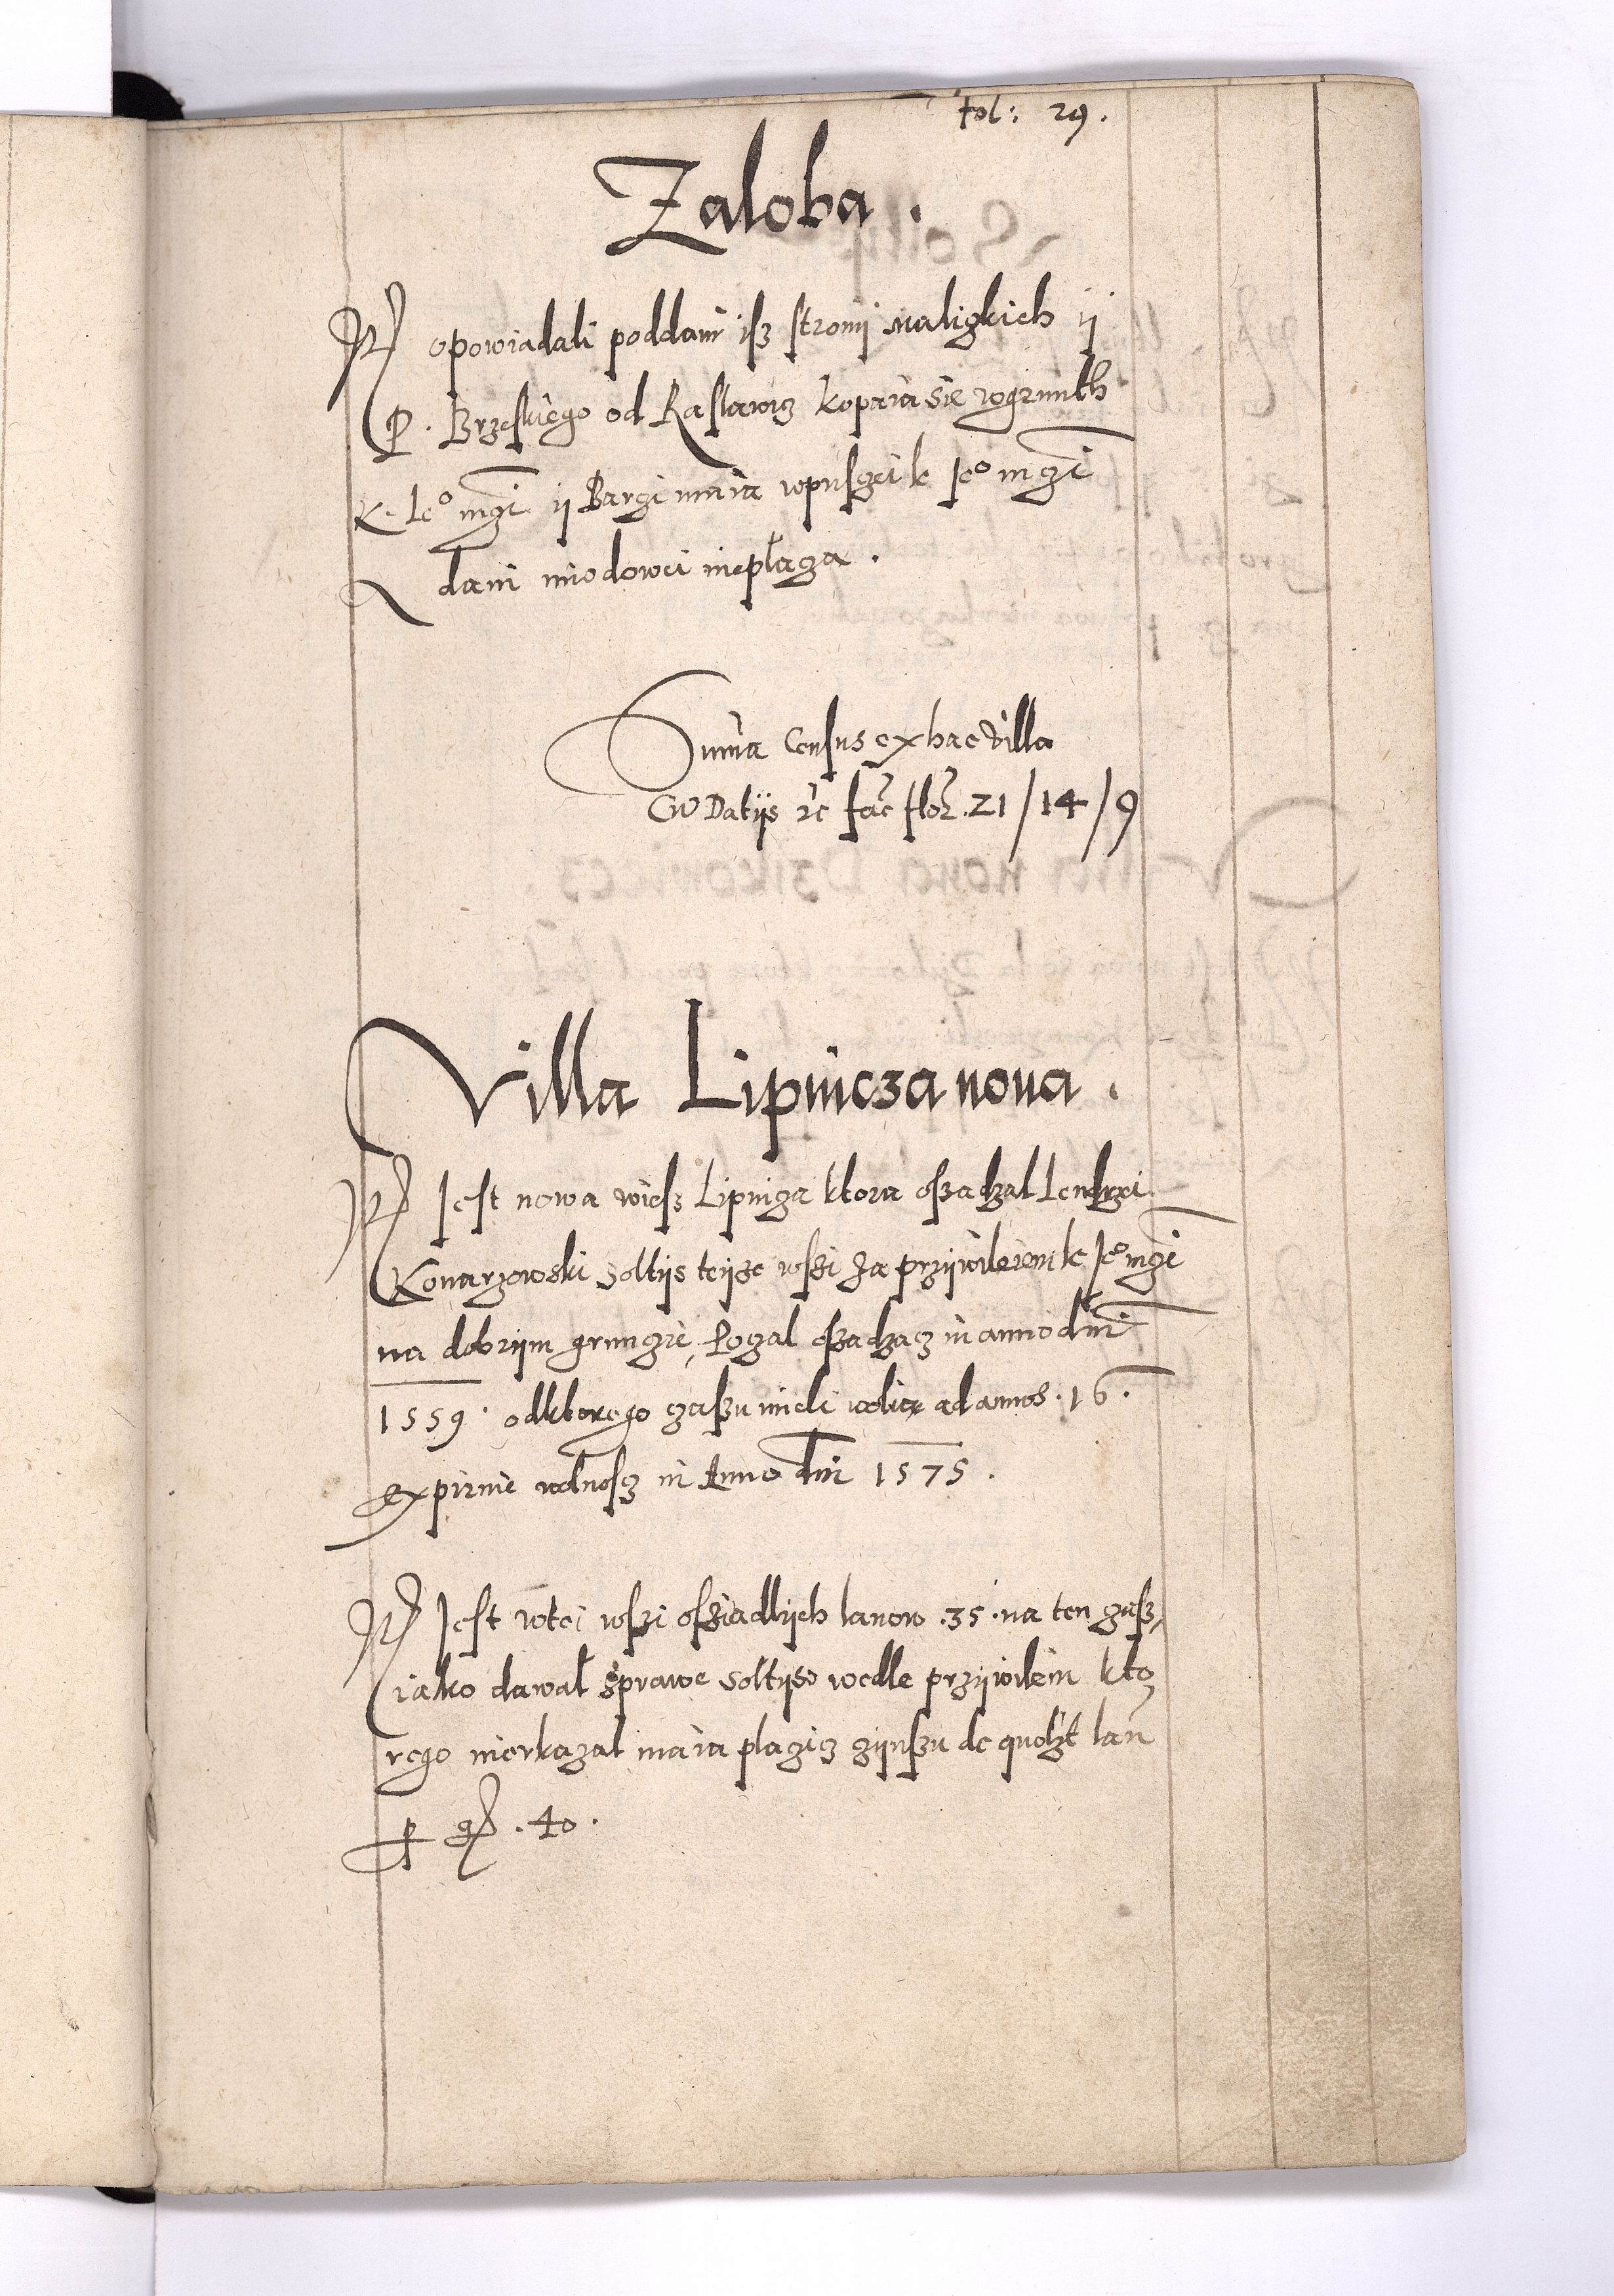 fol: 29.
Zaloba.
opowiadali poddani isz stroni naliczkich ij
P. Brzeskiego od Raslawicz kopaia sie wgrunth
K. Je° mczi ij Barczi maia wpusczi k Je° mczi
dani miodowei nieplacza.
Suma Census ex hac villa
Cū Datijs etc fac flor. 21/14/9
Villa Lipnicza noua.
Jest nowa wiesz Lipnicza ktora oszadzal
Konarzowski soltijs teijze wszi za przijwileiem k Je° mczi
na dobrijm grunczie, Poczal oszadzacz in anno dni
1559. odktorego czaszu mieli wolia ad annos. 16.
Expirnie wolnoscz in Anno dni 1575.
Jest wtei wszi osziadlijch lanow. 35. na ten czasz
iako dawal sprawe soltijs wedle przijwileiu kto
rego nieukazal maia placzicz czijnszu de quolzt lan
p gr. 40.